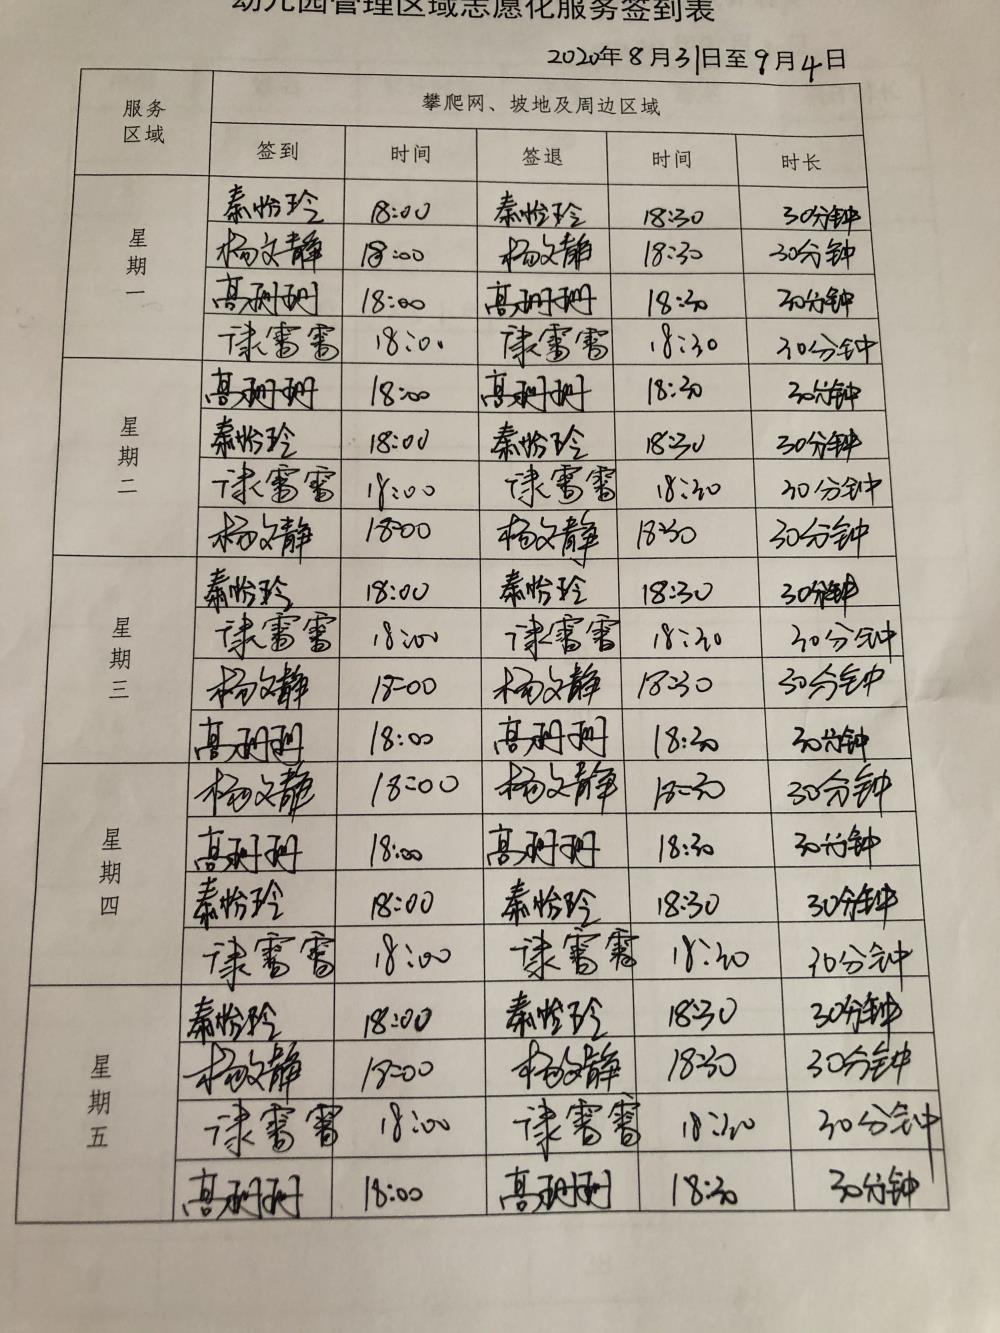 幼儿园管理区域志愿化服务签到表
2020年8月31日至9月4日
服务区域 攀爬网、坡地及周边区域
签到 时间 签退 时间 时长
星期一
秦怡玲 18:00 秦怡玲 18:30 30分钟
杨文静 18:00 杨文静 18:30 30分钟
高珊珊 18:00 高珊珊 18:30 30分钟
谏雷雷 18:00 谏雷雷 18:30 30分钟
星期二
高珊珊 18:00 高珊珊 18:30 30分钟
秦怡玲 18:00 秦怡玲 18:30 30分钟
谏雷雷 18:00 谏雷雷 18:30 30分钟
杨文静 18:00 杨文静 18:30 30分钟
星期三
秦怡玲 18:00 秦怡玲 18:30 30分钟
谏雷雷 18:00 谏雷雷 18:30 30分钟
杨文静 18:00 杨文静 18:30 30分钟
高珊珊 18:00 高珊珊 18:30 30分钟
星期四
杨文静 18:00 杨文静 18:30 30分钟
高珊珊 18:00 高珊珊 18:30 30分钟
秦怡玲 18:00 秦怡玲 18:30 30分钟
谏雷雷 18:00 谏雷雷 18:30 30分钟
星期五
秦怡玲 18:00 秦怡玲 18:30 30分钟
杨文静 18:00 杨文静 18:30 30分钟
谏雷雷 18:00 谏雷雷 18:30 30分钟
高珊珊 18:00 高珊珊 18:30 30分钟